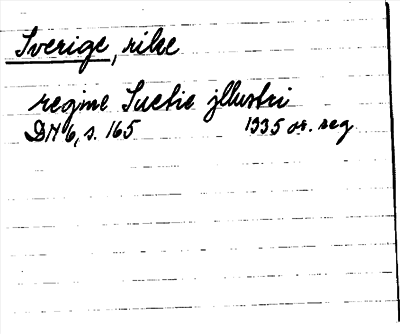 Sverige, rike
regine Suetie jllustri
DN 6, s. 165 1335 or. reg